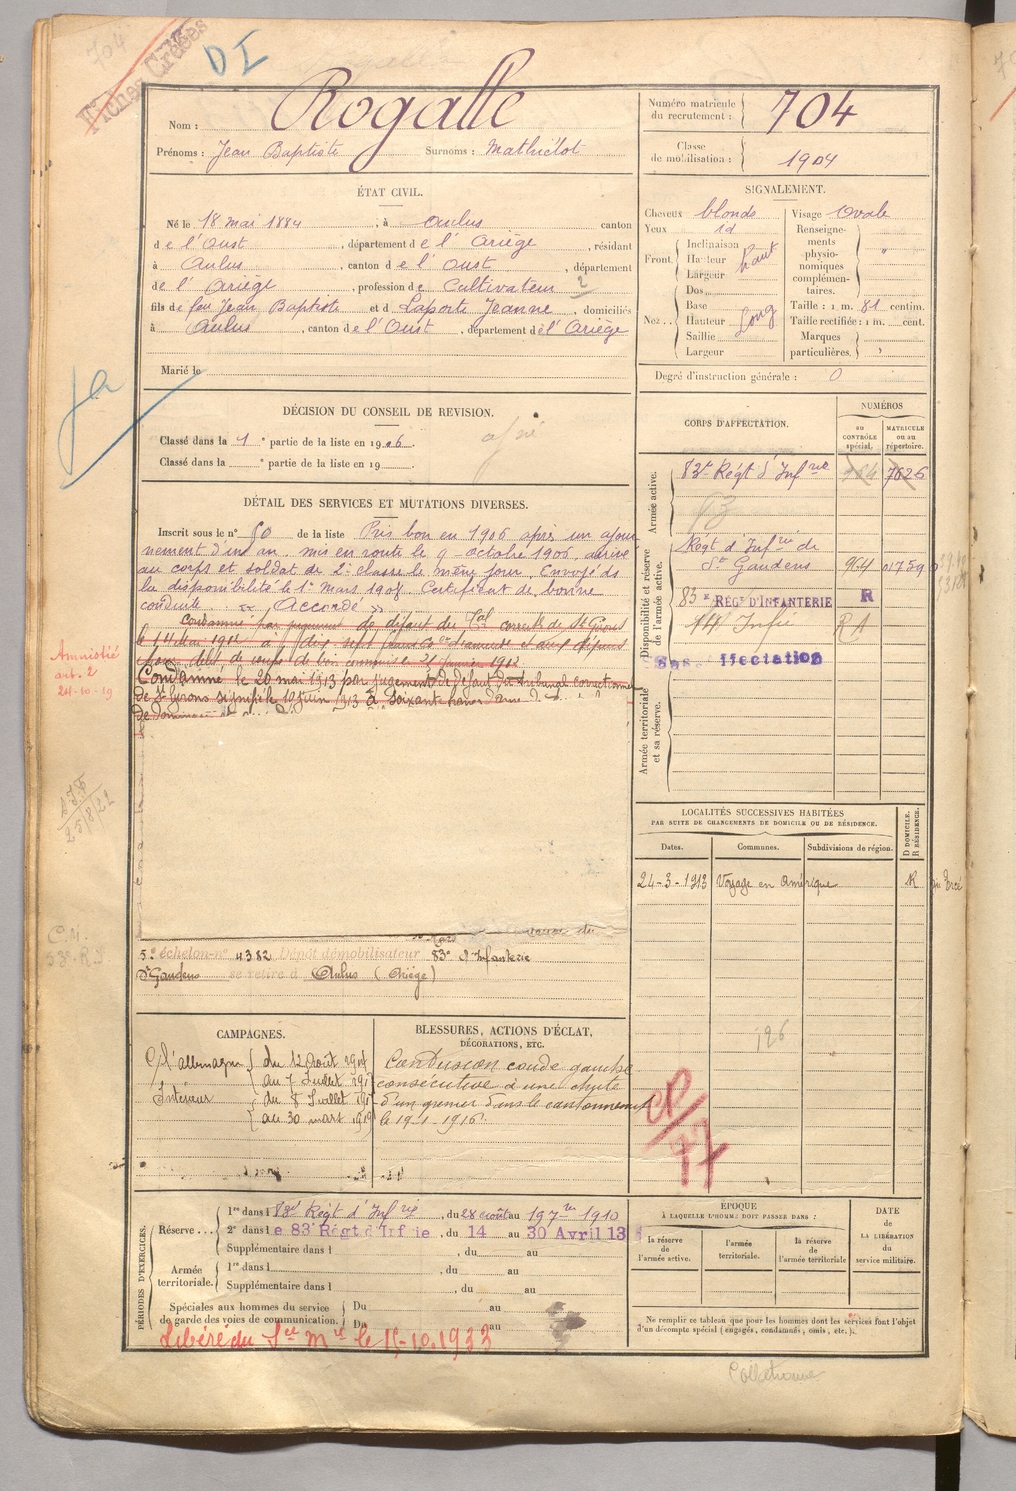 704
Fiches Créées
DI
Nom : Rogalle
Prénoms : Jean Baptiste Surnoms : Mathielot
Numéro matricule du recrutement : 704
Classe de mobilisation : 1904
ÉTAT CIVIL.
Né le 18 mai 1884, à Aulus canton
de l'Oust, département de l'Ariège, résidant
à Aulus, canton de l'Oust, département
de l'Ariège, profession de Cultivateur 2
fils de feu Jean Baptiste et d Laporte Jeanne, domiciliés
à Aulus, canton de l'Oust, département de l'Ariège
Marié le
SIGNALEMENT.
Cheveux blonds
Yeux id
Front. Inclinaison
Hauteur haut
Largeur
Nez.. Dos
Base
Hauteur Long
Saillie
Largeur
Visage Ovale
Renseignements physionomiques complémentaires. "
Taille : 1 m. 81 centim.
Taille rectifiée : 1 m. cent.
Marques particulières. "
Degré d'instruction générale : 0
ja
DÉCISION DU CONSEIL DE REVISION.
Classé dans la 1e partie de la liste en 1906.
Classé dans la e partie de la liste en 19
CORPS D'AFFECTATION.
NUMÉROS
au CONTRÔLE spécial.
MATRICULE ou au répertoire.
Armée active.
83e Régt d'Infrie 764 7626
83
Disponibilité et réserve de l'armée active.
Régt d'Infrie de
St Gaudens 964 01759
83e RÉGt D'INFANTERIE R
14 Infie RA
Sans affectation
Armée territoriale et sa réserve.
DÉTAIL DES SERVICES ET MUTATIONS DIVERSES.
Inscrit sous le n° 50 de la liste Pris bon en 1906 après un ajour
nement d'un an. mis en route le 9 octobre 1906, arrivé
au corps et soldat de 2e classe le même jour. Envoyé ds
la disponibilité le 1er mars 1908. Certificat de bonne
conduite « Accordé »
Condamné par jugement de défaut du Tal correct de St Girons
le 14 mai 1912 à dix sept francs d'amende et aux dépens
pour délit de coupe de bois commis le 25 janvier 1912
Condamné le 20 mai 1913 par jugement de défaut du tribunal correctionnel
de St Girons signifié le 10 juin 1913 à soixante francs d'amende
Amnistié
art. 2
24-10-19
25/8/22
C.M.
5e échelon-n° 4382 Dépôt démobilisateur 83e d'Infanterie
St Gaudens se retire à Aulus (Ariège)
LOCALITÉS SUCCESSIVES HABITÉES
PAR SUITE DE CHANGEMENTS DE DOMICILE OU DE RÉSIDENCE.
Dates. Communes. Subdivisions de région. D DOMICILE. R RÉSIDENCE.
24-3-1913 Voyage en Amérique R
126
CAMPAGNES.
C/ l'allemagne du 12 Août 1914
au 7 Juillet 191
Intérieur du 8 Juillet 191
au 30 mars 1919
BLESSURES, ACTIONS D'ÉCLAT,
DÉCORATIONS, ETC.
Contusion coude gauche
consécutive à une chute
d'un grenier dans le cantonnement
le 19-1-1916.
CR/47
PÉRIODES D'EXERCICES.
Réserve... 1re dans l 83e Régt d'Infrie, du 28 août au 19 7bre 1910
2e dans le 83e Régt d'Infie, du 14 au 30 Avril 13
Supplémentaire dans l, du au
Armée territoriale. 1re dans l, du au
Supplémentaire dans l, du au
Spéciales aux hommes du service de garde des voies de communication. Du au
Du au
Libéré du Sce Mre le 15-10-1933
ÉPOQUE
À LAQUELLE L'HOMME DOIT PASSER DANS :
la réserve de l'armée active.
l'armée territoriale.
la réserve de l'armée territoriale
DATE DE LA LIBÉRATION du service militaire.
Ne remplir ce tableau que pour les hommes dont les services font l'objet
d'un décompte spécial (engagés, condamnés, omis, etc.).